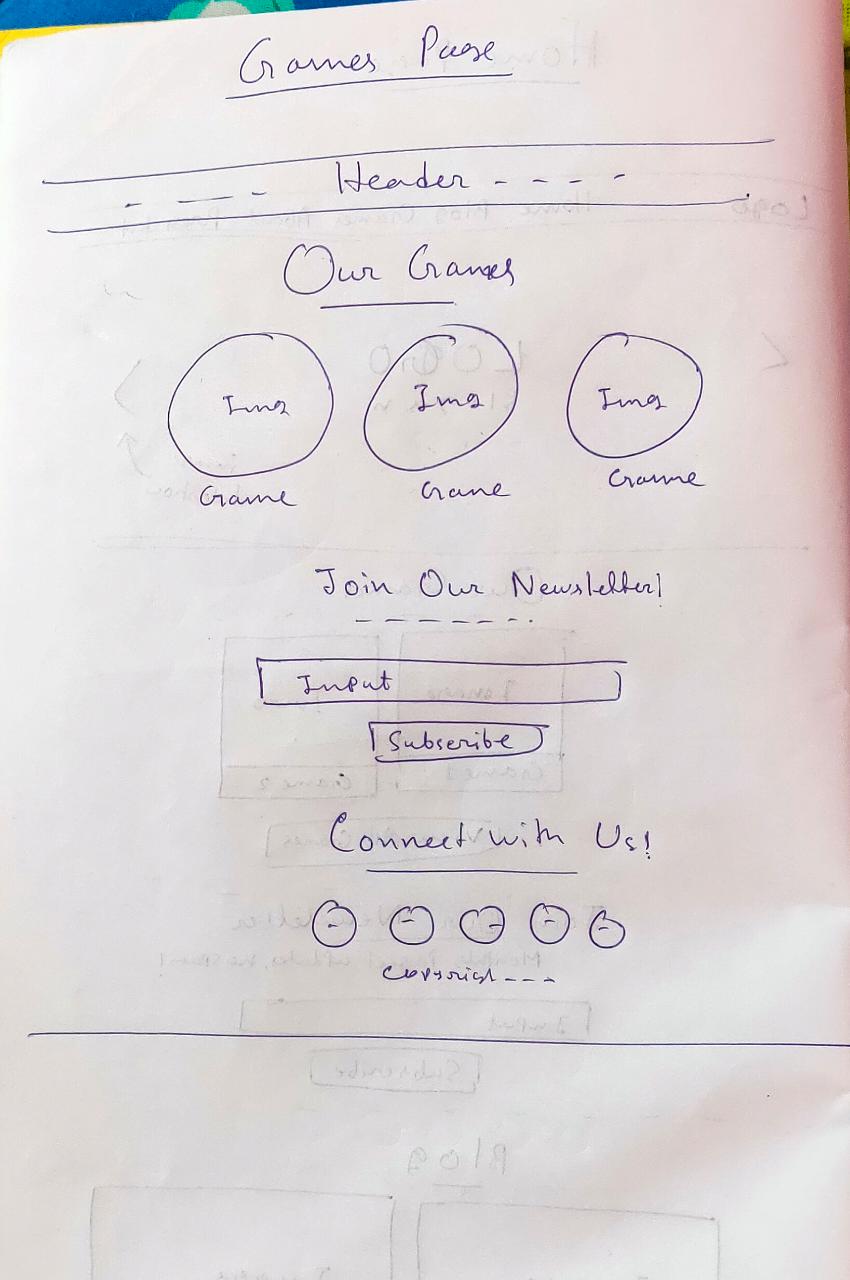 Games Page
Header
Our Games
Img Img Img
Game Game Game
Join Our Newsletter!
Input
Subscribe
Connect with Us!